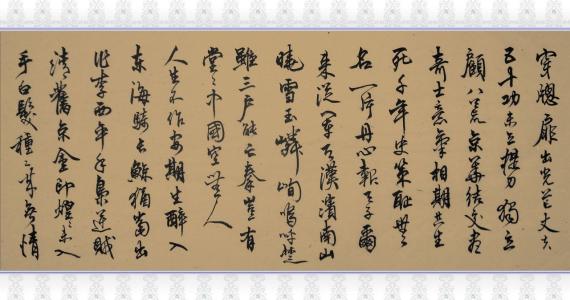 穿牕扉出光芒丈夫
五十功未立提刀獨立
顧八荒京華結交盡
奇士意氣相期共生
死千年史策恥無
名一片丹心報天子爾
來從軍天漢濱南山
曉雪玉嶙峋嗚呼楚
雖三戶能亡秦豈有
堂堂中國空無人
人生不作安期生醉入
東海騎長鯨猶當出
作李西平手梟逆賊
清舊京金印煌煌未入
手白髮種種來無情